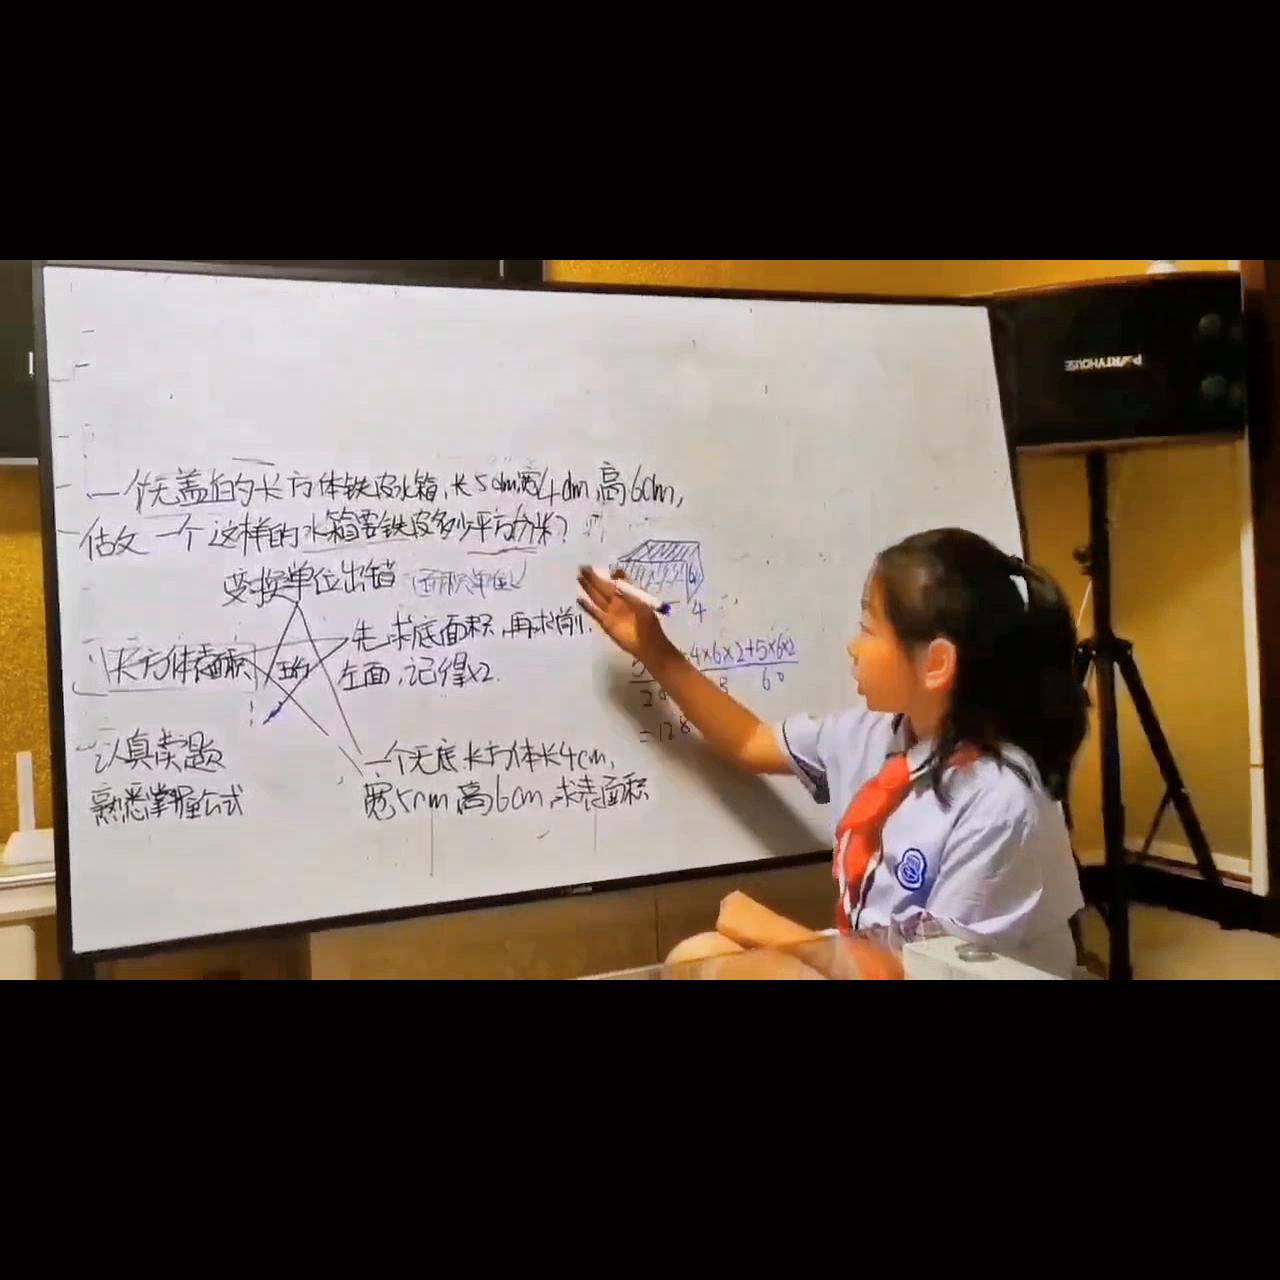 一个无盖的长方体铁皮水箱,长5dm,宽4dm,高6dm,
估女一个这样的水箱要铁皮多少平方分米?
变换单位出错 (面积单位)
先求底面积,再求前,
左面,记得x2.
长方体表面积
认真卖题
熟悉掌握公式
一个无底长方体长4cm,
宽5cm,高6cm,求表面积
6
4
4×6×2+5×6×2
60
=128
PARTYHOUSE